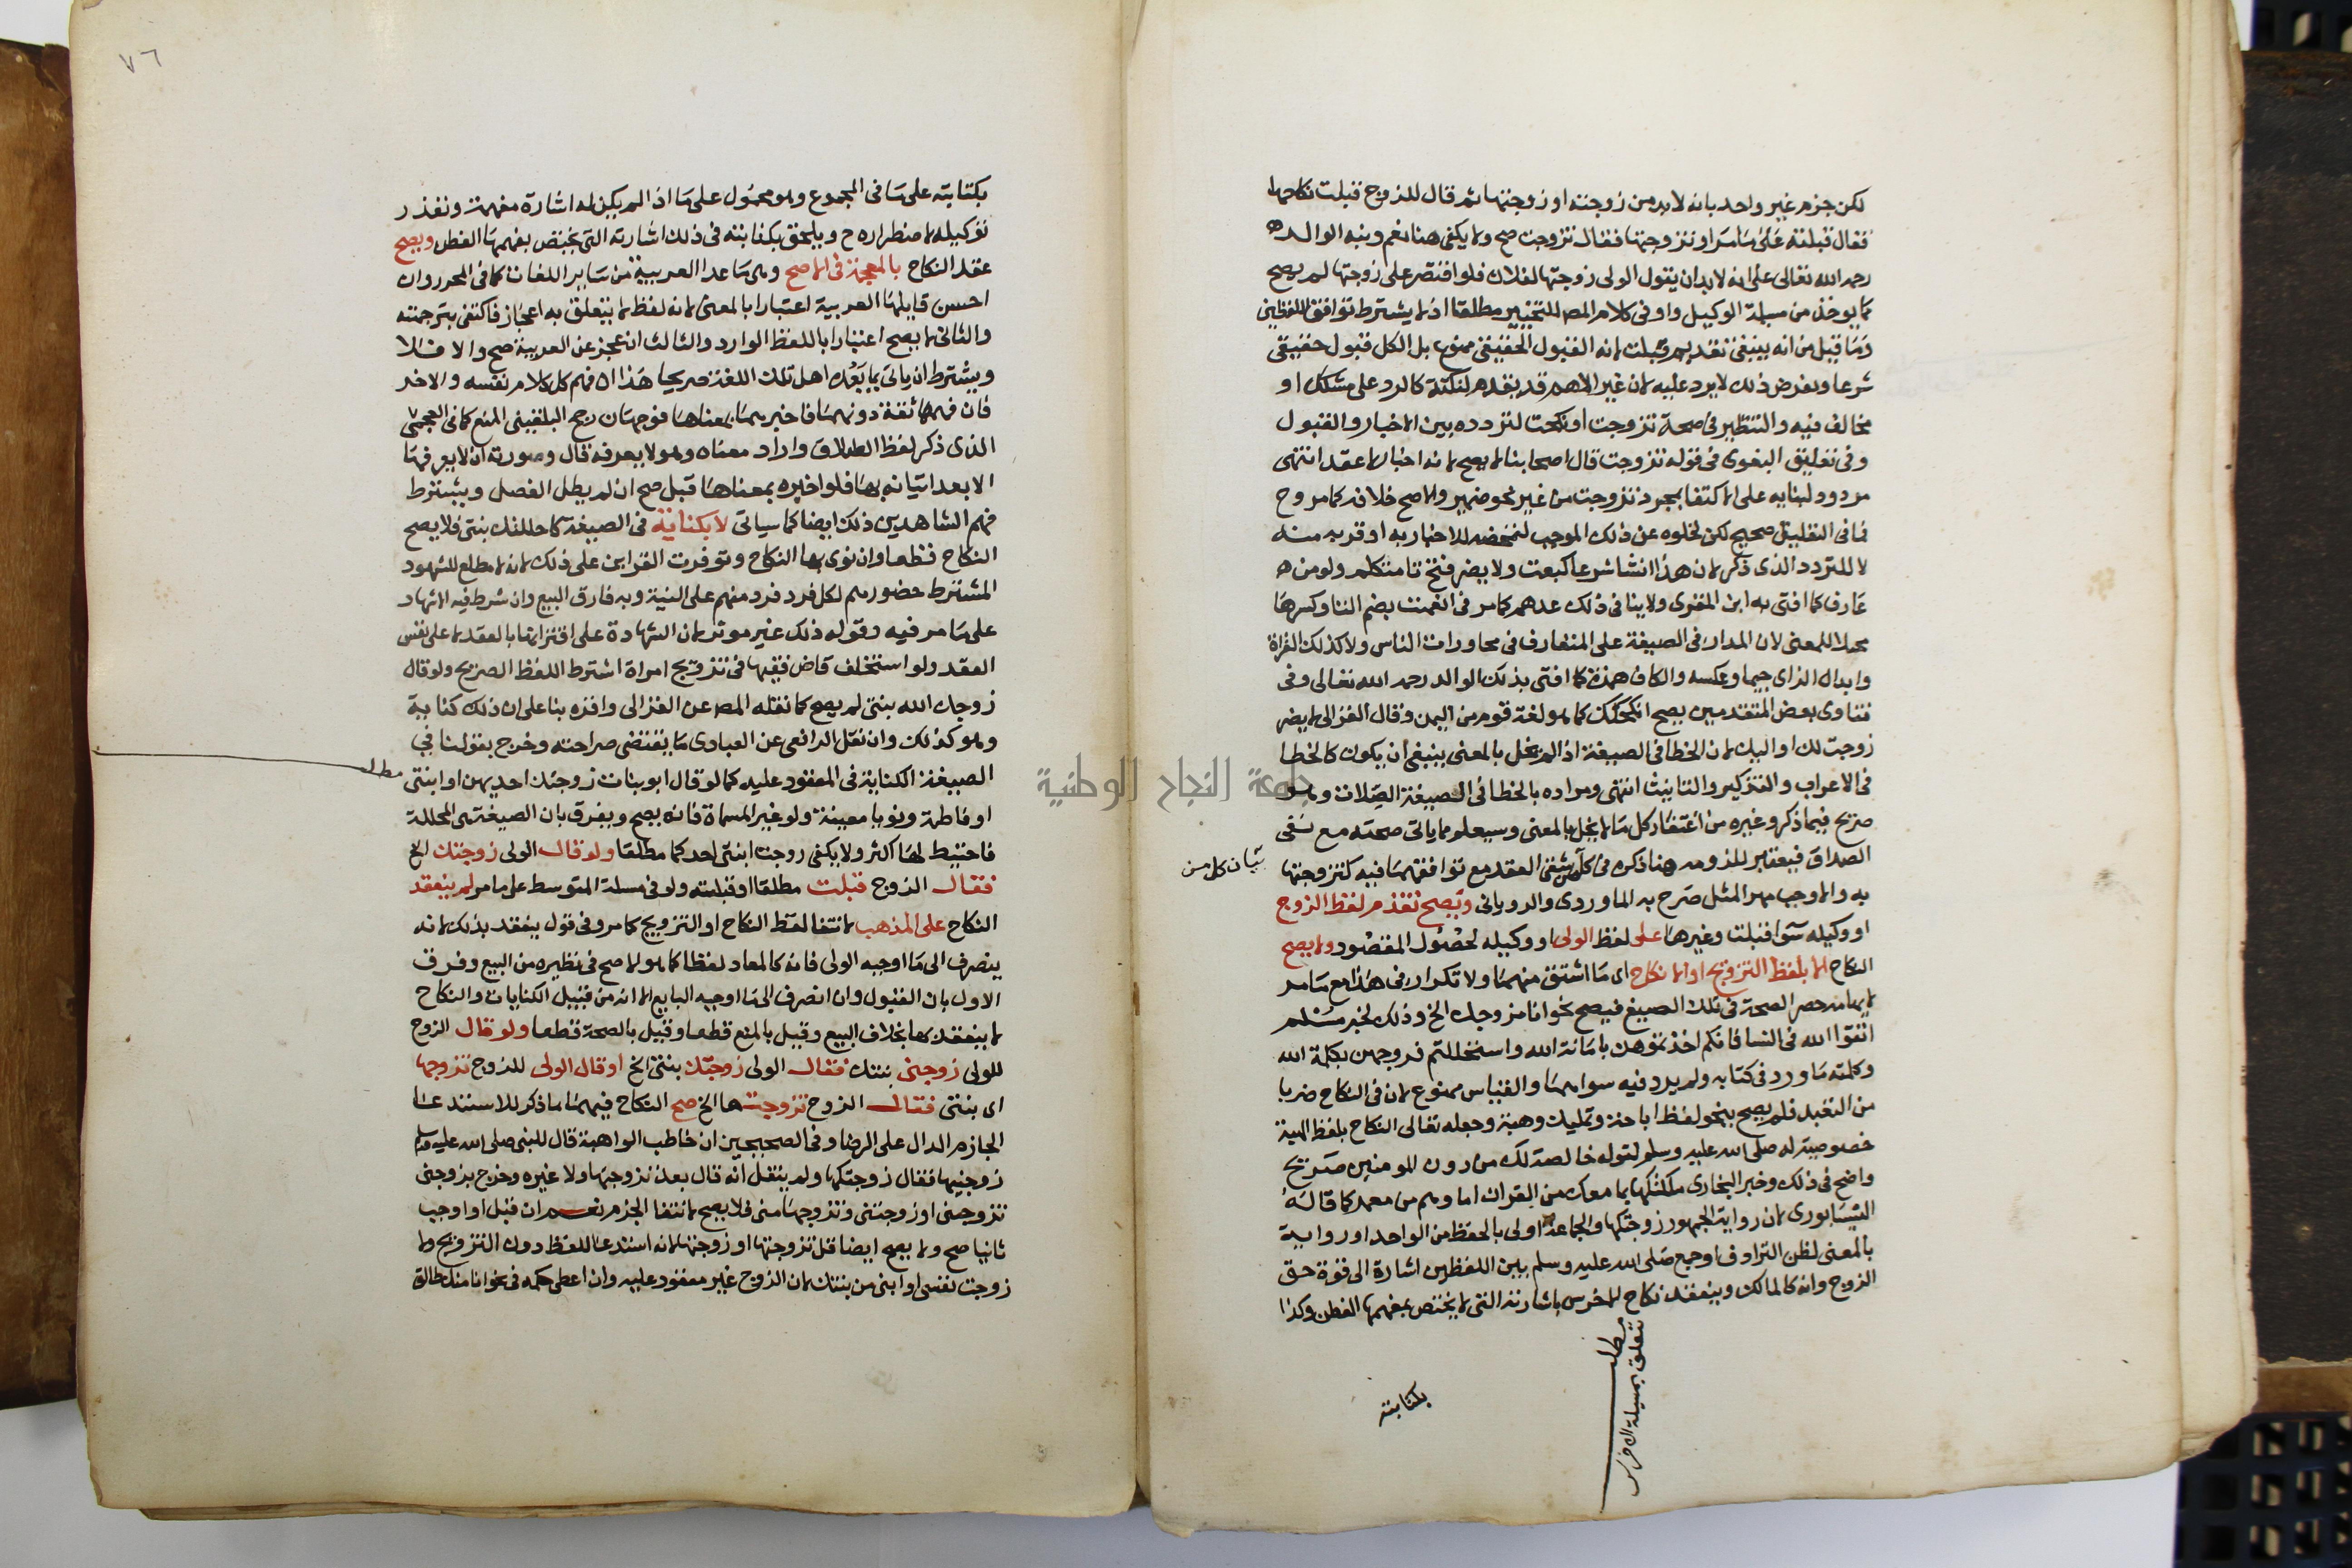 لكن جزم غير واحد بانه لا بد من زوجته او زوجتها ثم قال للزوج قبلت نكاحها
فقال قبلته على ما مر او تزوجتها فقال تزوجت صح ولا يكفي هنا نعم ونبه الوالد
رحمه الله تعالى على انه لا بد ان يقول الولي زوجتها لفلان فلو اقتصر على زوجتها لم يصح
كما يوخذ من مسيلة الوكيل واو في كلام المص للتخيير مطلقا اذ لا يشترط توافق اللفظين
وما قيل من انه ينبغي تقديم قبلت لانه القبول الحقيقي ممنوع بل الكل قبول حقيقي
شرعا وبفرض ذلك لا يرد عليه لان غير الاهم قد يقدم لنكتة كالرد على مشكك او
مخالف فيه والتنظير في صحة تزوجت او نكحت لتردده بين الاخبار والقبول
وفي تعليق البغوي في قوله تزوجت قال اصحابنا لا يصح لانه اخبار لا عقد انتهى
مردود لبنايه على الاكتفا بمجرد تزوجت من غير نحو ضمير والاصح خلافه كما مر وح
فما في التعليق صحيح لكن لخلوه عن ذلك الموجب لتمحضه للاخبار به او قربه منه
لا للتردد الذي ذكر لان هذا انشا شرعا كبعت ولا يضر فتح تا متكلم ولو من
عارف كما افتى به ابن المقري ولا ينافي ذلك عدهم كما مر في انعمت بضم التا وكسرها
مخلا للمعنى لان المدار في الصيغة على المتعارف في محاورات الناس ولا كذلك القراة
وابدال الزاي جيما وعكسه والكاف همزة كما افتى بذلك الوالد رحمه الله تعالى وفي
فتاوى بعض المتقدمين يصح انكحكك كما هو لغة قوم من اليمن وقال الغزالي لا يضر
زوجت لك او اليك لان الخطا في الصيغة اذا لم يخل بالمعنى ينبغي ان يكون كالخطا
في الاعراب والتذكير والتانيث انتهى ومراده بالخطا في الصيغة الصلات وهو
صريح فيما ذكر وغيره من اغتفار كل ما لا يخل بالمعنى وسيعلم مما ياتي صحته مع نفي
الصداق فيعتبر للزومه هنا ذكره في كل من شقي العقد مع توافقهما فيه كتزوجتها
بيان كل من
به والا وجب مهر المثل صرح به الماوردي والروياني ويصح تقدم لفظ الزوج
او وكيله سوا قبلت وغيرها على لفظ الولي او وكيله لحصول المقصود ولا يصح
النكاح الا بلفظ التزويج او الانكاح اي ما اشتق منهما ولا تكرار في هذا مع ما مر
لايهامه حصر الصحة في تلك الصيغ فيصح نحو انا مزوجك الخ وذلك لخبر مسلم
اتقوا الله في النسا فانكم اخذتموهن بامانة الله واستحللتم فروجهن بكلمة الله
وكلمته ما ورد في كتابه ولم يرد فيه سواهما والقياس ممنوع لان في النكاح ضربا
من التعبد فلم يصح بنحو لفظ اباحة وتمليك وهبة وجعله تعالى النكاح بلفظ الهبة
خصوصية له صلى الله عليه وسلم لقوله خالصة لك من دون المومنين صريح
واضح في ذلك وخبر البخاري ملكتكها بما معك من القران اما وهم من معمر كما قاله
النيسابوري لان رواية الجمهور زوجتكها والجماعة اولى بالحفظ من الواحد او رواية
بالمعنى لظن الترادف او جمع صلى الله عليه وسلم بين اللفظين اشارة الى قوة حق
الزوج وانه كالمالك وينعقد نكاح الاخرس باشارته التي لا يختص بفهمها الفطن وكذا
مطلب
تتعلق بمسيلة الاخرس
بكتابته
٧٦
بكتابته على ما في المجموع وهو محمول على ما اذا لم يكن له اشارة مفهمة وتعذر
توكيله لاضطراره ح ويلحق بكتابته في ذلك اشارته التي يختص بفهمها الفطن ويصح
عقد النكاح بالعجمية في الاصح وهي ما عدا العربية من ساير اللغات كما في المحرر وان
احسن قايلها العربية اعتبارا بالمعنى لانه لفظ لا يتعلق به اعجاز فاكتفي بترجمته
والثاني لا يصح اعتبارا باللفظ الوارد والثالث ان عجز عن العربية صح والا فلا
ويشترط ان ياتي بما يعده اهل تلك اللغة صريحا هذا ان فهم كل كلام نفسه والاخر
فان فهمها ثقة دونهما فاخبرهما بمعناها فوجهان رجح البلقيني المنع كما في العجمي
الذي ذكر لفظ الطلاق واراد معناه وهو لا يعرفه قال وصورته ان لا يعرفها
الا بعد اتيانه بها فلو اخبره بمعناها قبل صح ان لم يطل الفصل ويشترط
فهم الشاهدين ذلك ايضا كما سياتي لا بكناية في الصيغة كاحللتك بنتي فلا يصح
النكاح قطعا وان نوى بها النكاح وتوفرت القراين على ذلك لانه لا مطلع للشهود
المشترط حضورهم لكل فرد فرد منهم على النية وبه فارق البيع وان شرط فيه الاشهاد
على ما مر فيه وقوله ذلك غير موثر لان الشهادة على اقترانها بالعقد لا على نفس
العقد ولو استخلف قاض فقيها في تزويج امراة اشترط اللفظ الصريح ولو قال
زوجك الله بنتي لم يصح كما نقله المص عن الغزالي واقره بنا على ان ذلك كناية
وهو كذلك وان نقل الرافعي عن العبادي ما يقتضي صراحته وخرج بقولنا في
مطلب
الصيغة الكناية في المعقود عليه كما لو قال ابو بنات زوجتك احديهن او ابنتي
او فاطمة ونويا معينة ولو غير المسماة فانه يصح ويفرق بان الصيغة هي المحللة
فاحتيط لها اكثر ولا يكفي زوجت ابنتي احدكما مطلقا ولو قال الولي زوجتك الخ
فقال الزوج قبلت مطلقا او قبلته ولو في مسيلة المتوسط على ما مر لم ينعقد
النكاح على المذهب لانتفا لفظ النكاح او التزويج كما مر وفي قول ينعقد بذلك لانه
ينصرف الى ما اوجبه الولي فانه كالمعاد لفظا كما هو الاصح في نظيره من البيع وفرق
الاول بان القبول وان انصرف الى ما اوجبه البايع الا انه من قبيل الكنايات والنكاح
لا ينعقد بها بخلاف البيع وقيل بالمنع قطعا وقيل بالصحة قطعا ولو قال الزوج
للولي زوجني بنتك فقال الولي زوجتك بنتي الخ او قال الولي للزوج تزوجها
اي بنتي فقال الزوج تزوجتها الخ صح النكاح فيهما بما ذكر للاستدعا
الجازم الدال على الرضا وفي الصحيحين ان خاطب الواهبة قال للنبي صلى الله عليه وسلم
زوجنيها فقال زوجتكها ولم ينقل انه قال بعد تزوجتها ولا غيره وخرج بزوجني
تزوجني او زوجتني وتزوجها مني فلا يصح لانتفا الجزم نعم ان قبل او اوجب
ثانيا صح ولا يصح ايضا قل تزوجتها او زوجتها لانه استدعا للفظ دون التزويج ولا
زوجت نفسي او ابني من بنتك لان الزوج غير معقود عليه وان اعطي حكمه في نحو انا منك طالق
جامعة النجاح الوطنية